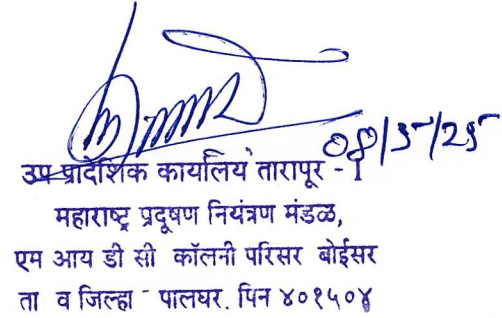 08/5/25
उप प्रादेशिक कार्यालय तारापूर - I
महाराष्ट्र प्रदूषण नियंत्रण मंडळ,
एम आय डी सी कॉलनी परिसर बोईसर
ता व जिल्हा - पालघर. पिन ४०१५०४